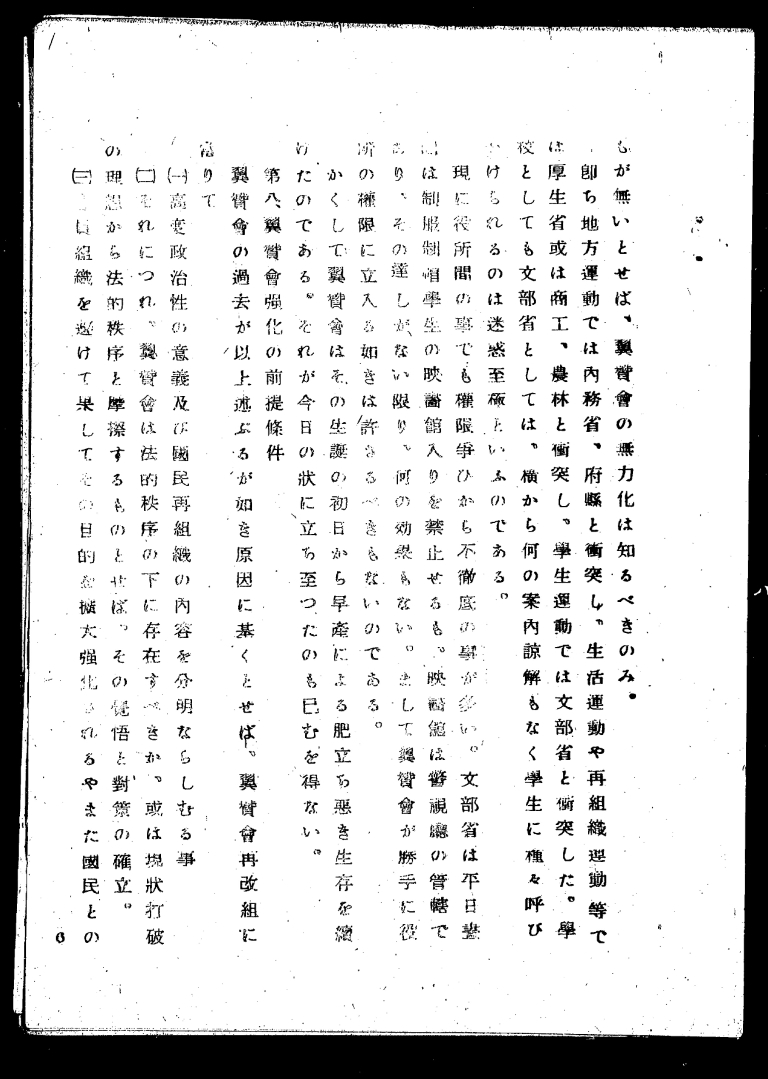 もが無いとせば、翼賛會の無力化は知るべきのみ。
卽ち地方運動では內務省、府縣と衝突し、生活運動や再組織運動等で
は厚生省或は商工、農林と衝突し。學生運動では文部省と衝突した。學
校としても文部省としては、橫から何の案內諒解もなく學生に種々呼び
かけられるのは迷惑至極といふのである。
現に役所間の事でも權限爭ひから不徹底の事が多い。文部省は平日晝
間は制服制帽學生の映畵館入りを禁止せるも、映畵館は警視廳の管轄で
あり、その達しがない限り、何の効果もない。まして翼賛會が勝手に役
所の權限に立入る如きは許さるべきもないのである。
かくして翼賛會はその生誕の初日から早產による肥立ち惡き生存を續
けたのである。それが今日の狀に立ち至つたのも已むを得ない。
第八、翼賛會强化の前提條件
翼賛會の過去が以上述ぶるが如き原因に基くとせば。翼賛會再改組に
當りて
㈠高度政治性の意義及び國民再組織の內容を分明ならしむる事
㈡それにつれ、翼賛會は法的秩序の下に存在すべきか、或は現狀打破
の理想から法的秩序と摩擦するものとせば。その覺悟と對策の確立。
㈢ 員組織を避けて果してその目的を擴大强化されるやまた國民との
6